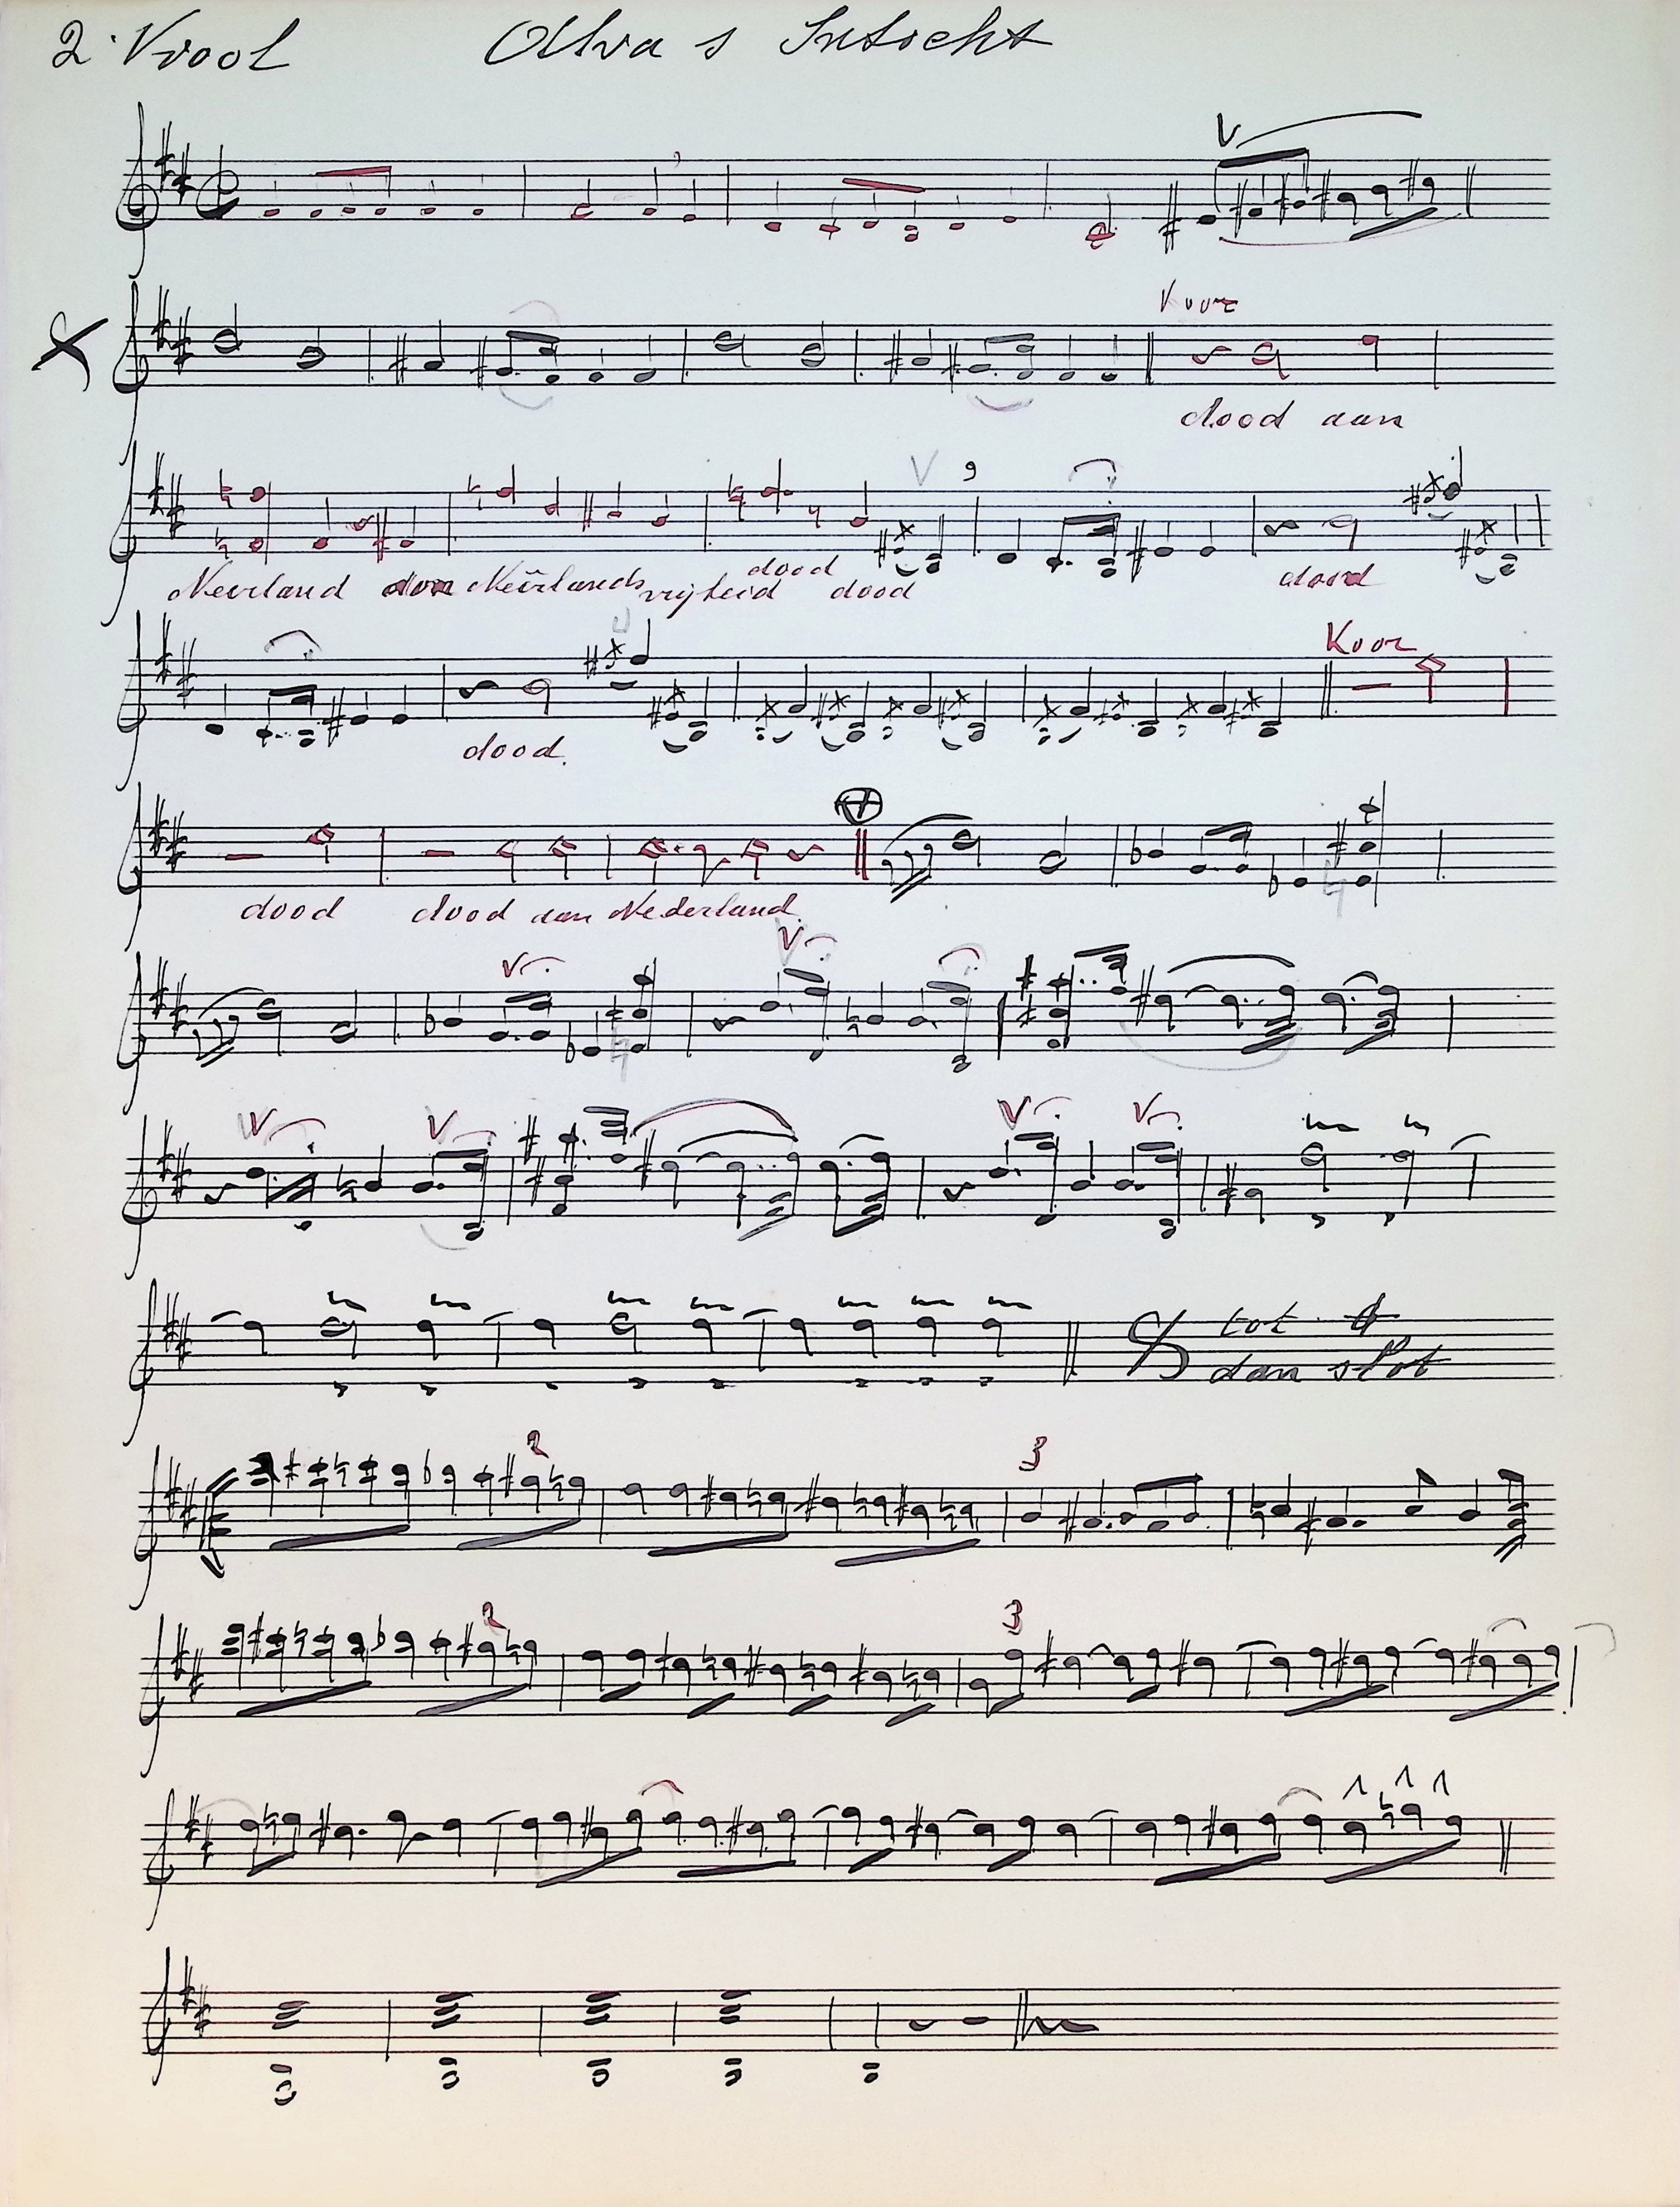 2. Viool Alva s Intocht
Koor
dood aan
Neerland dood aan Neêrlands vrijheid dood dood dood
Koor
dood.
dood dood aan Nederland.
tot
dan slot
2 3
2 3